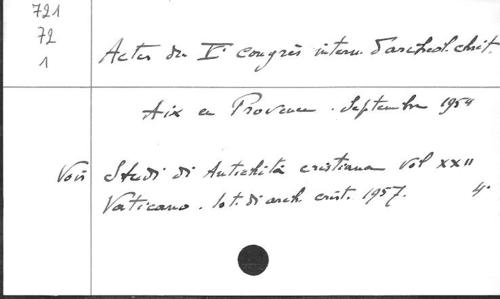 721
72
1
Actes du Vᵉ congrès intern. d'archéol. chrét.
Aix en Provence. Septembre 1954
Voir Studi di Antichità cristiana Vol XXII
Vaticano. Ist. di arch. crist. 1957. 4°